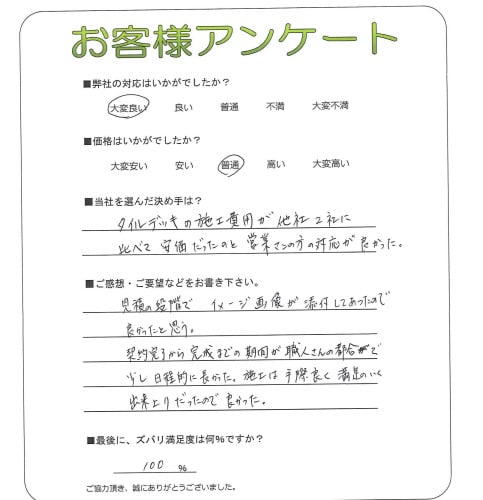 お客様アンケート
■弊社の対応はいかがでしたか？
大変良い 良い 普通 不満 大変不満
■価格はいかがでしたか？
大変安い 安い 普通 高い 大変高い
■当社を選んだ決め手は？
タイルデッキの施工費用が他社2社に
比べて安価だったのと営業さんの方の対応が良かった。
■ご感想・ご要望などをお書き下さい。
見積の段階でイメージ画像が添付してあったので
良かったと思う。
契約完了から完成までの期間が職人さんの都合で
少し日程的に長かった。施工は手際良く満足のいく
出来上りだったので良かった。
■最後に、ズバリ満足度は何%ですか？
100 %
ご協力頂き、誠にありがとうございました。